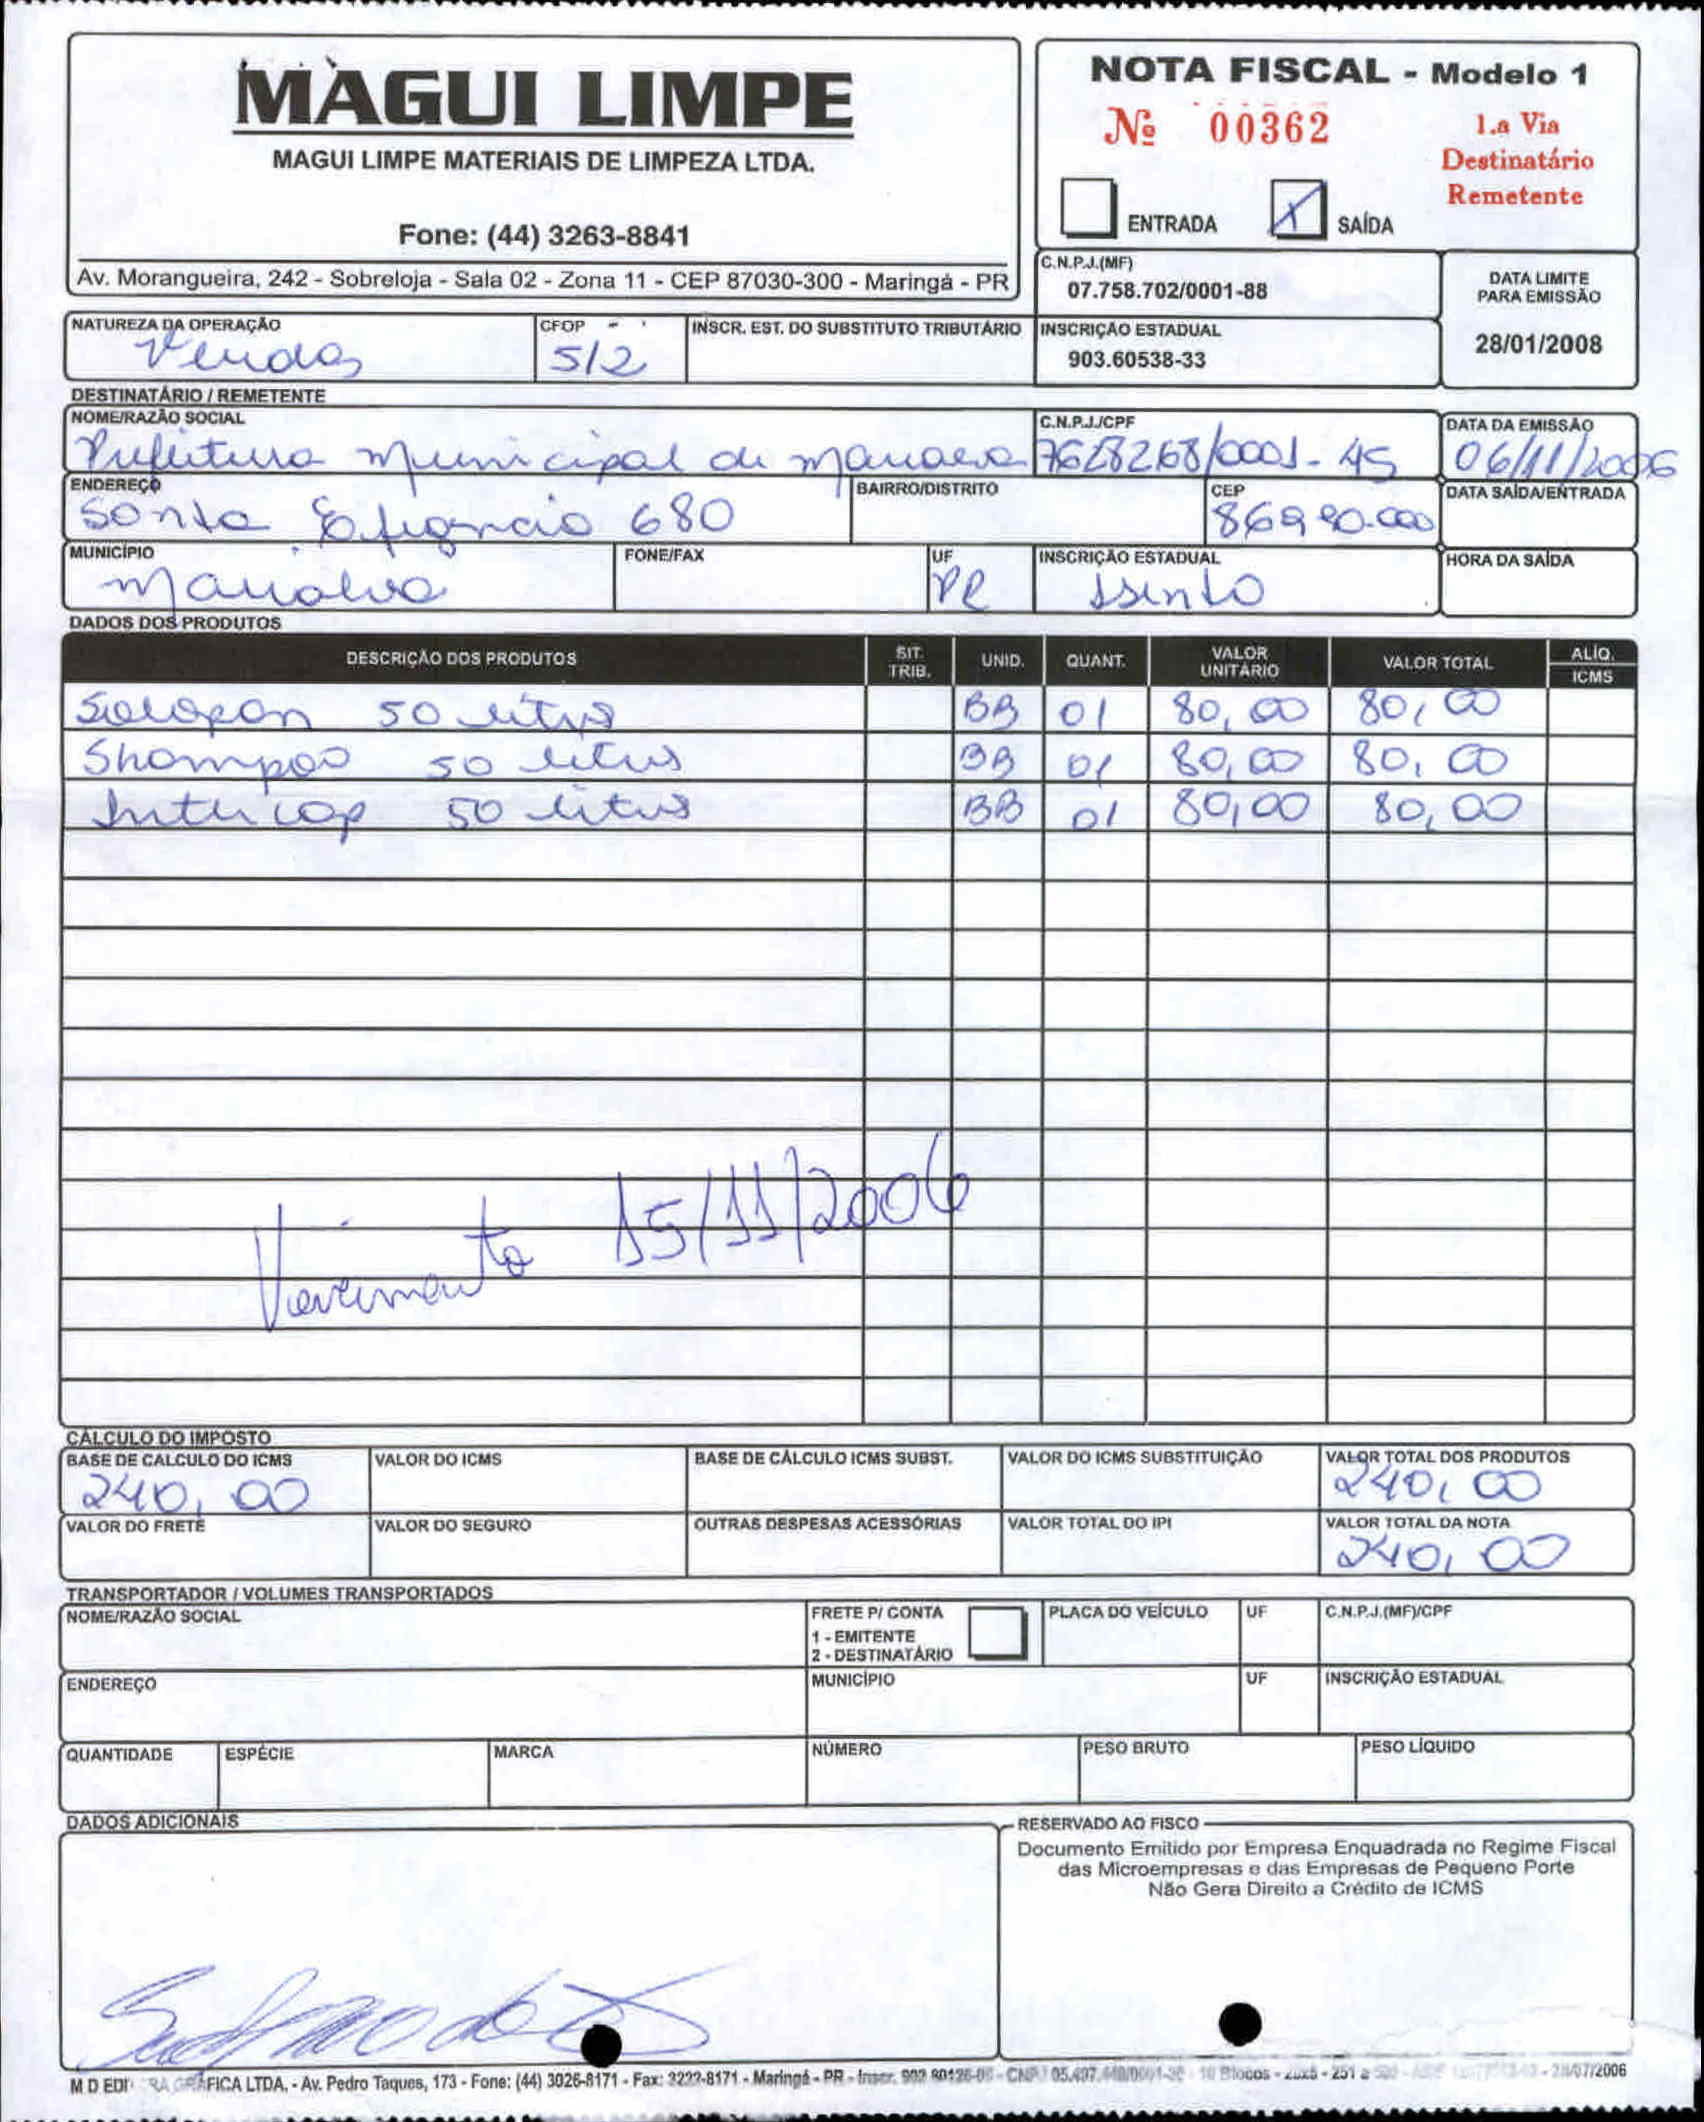 MAGUI LIMPE
MAGUI LIMPE MATERIAIS DE LIMPEZA LTDA.
Fone: (44) 3263-8841
Av. Morangueira, 242 - Sobreloja - Sala 02 - Zona 11 - CEP 87030-300 - Maringá - PR
NOTA FISCAL - Modelo 1
Nº 00362
1.a Via
Destinatário
Remetente
ENTRADA X SAÍDA
C.N.P.J.(MF)
07.758.702/0001-88
DATA LIMITE
PARA EMISSÃO
28/01/2008
NATUREZA DA OPERAÇÃO CFOP INSCR. EST. DO SUBSTITUTO TRIBUTÁRIO INSCRIÇÃO ESTADUAL
Vendas 512 903.60538-33
DESTINATÁRIO / REMETENTE
NOME/RAZÃO SOCIAL C.N.P.J./CPF DATA DA EMISSÃO
Prefeitura Municipal de 7628268/0001-45 06/11/2006
ENDEREÇO BAIRRO/DISTRITO CEP DATA SAÍDA/ENTRADA
Santa 680 86990.000
MUNICÍPIO FONE/FAX UF INSCRIÇÃO ESTADUAL HORA DA SAÍDA
Marialva PR Isento
DADOS DOS PRODUTOS
DESCRIÇÃO DOS PRODUTOS SIT. TRIB. UNID. QUANT. VALOR UNITÁRIO VALOR TOTAL ALÍQ. ICMS
50 litros BB 01 80,00 80,00
Shampoo 50 litros BB 01 80,00 80,00
50 litros BB 01 80,00 80,00
Vencimento 15/11/2006
CÁLCULO DO IMPOSTO
BASE DE CÁLCULO DO ICMS VALOR DO ICMS BASE DE CÁLCULO ICMS SUBST. VALOR DO ICMS SUBSTITUIÇÃO VALOR TOTAL DOS PRODUTOS
240,00 240,00
VALOR DO FRETE VALOR DO SEGURO OUTRAS DESPESAS ACESSÓRIAS VALOR TOTAL DO IPI VALOR TOTAL DA NOTA
240,00
TRANSPORTADOR / VOLUMES TRANSPORTADOS
NOME/RAZÃO SOCIAL FRETE P/ CONTA PLACA DO VEÍCULO UF C.N.P.J.(MF)/CPF
1 - EMITENTE
2 - DESTINATÁRIO
ENDEREÇO MUNICÍPIO UF INSCRIÇÃO ESTADUAL
QUANTIDADE ESPÉCIE MARCA NÚMERO PESO BRUTO PESO LÍQUIDO
DADOS ADICIONAIS
RESERVADO AO FISCO
Documento Emitido por Empresa Enquadrada no Regime Fiscal
das Microempresas e das Empresas de Pequeno Porte
Não Gera Direito a Crédito de ICMS
M D LTDA. - Av. Pedro Taques, 173 - Fone: (44) 3026-8171 - Fax: 3222-8171 - Maringá - PR - 10 Blocos - 251 a